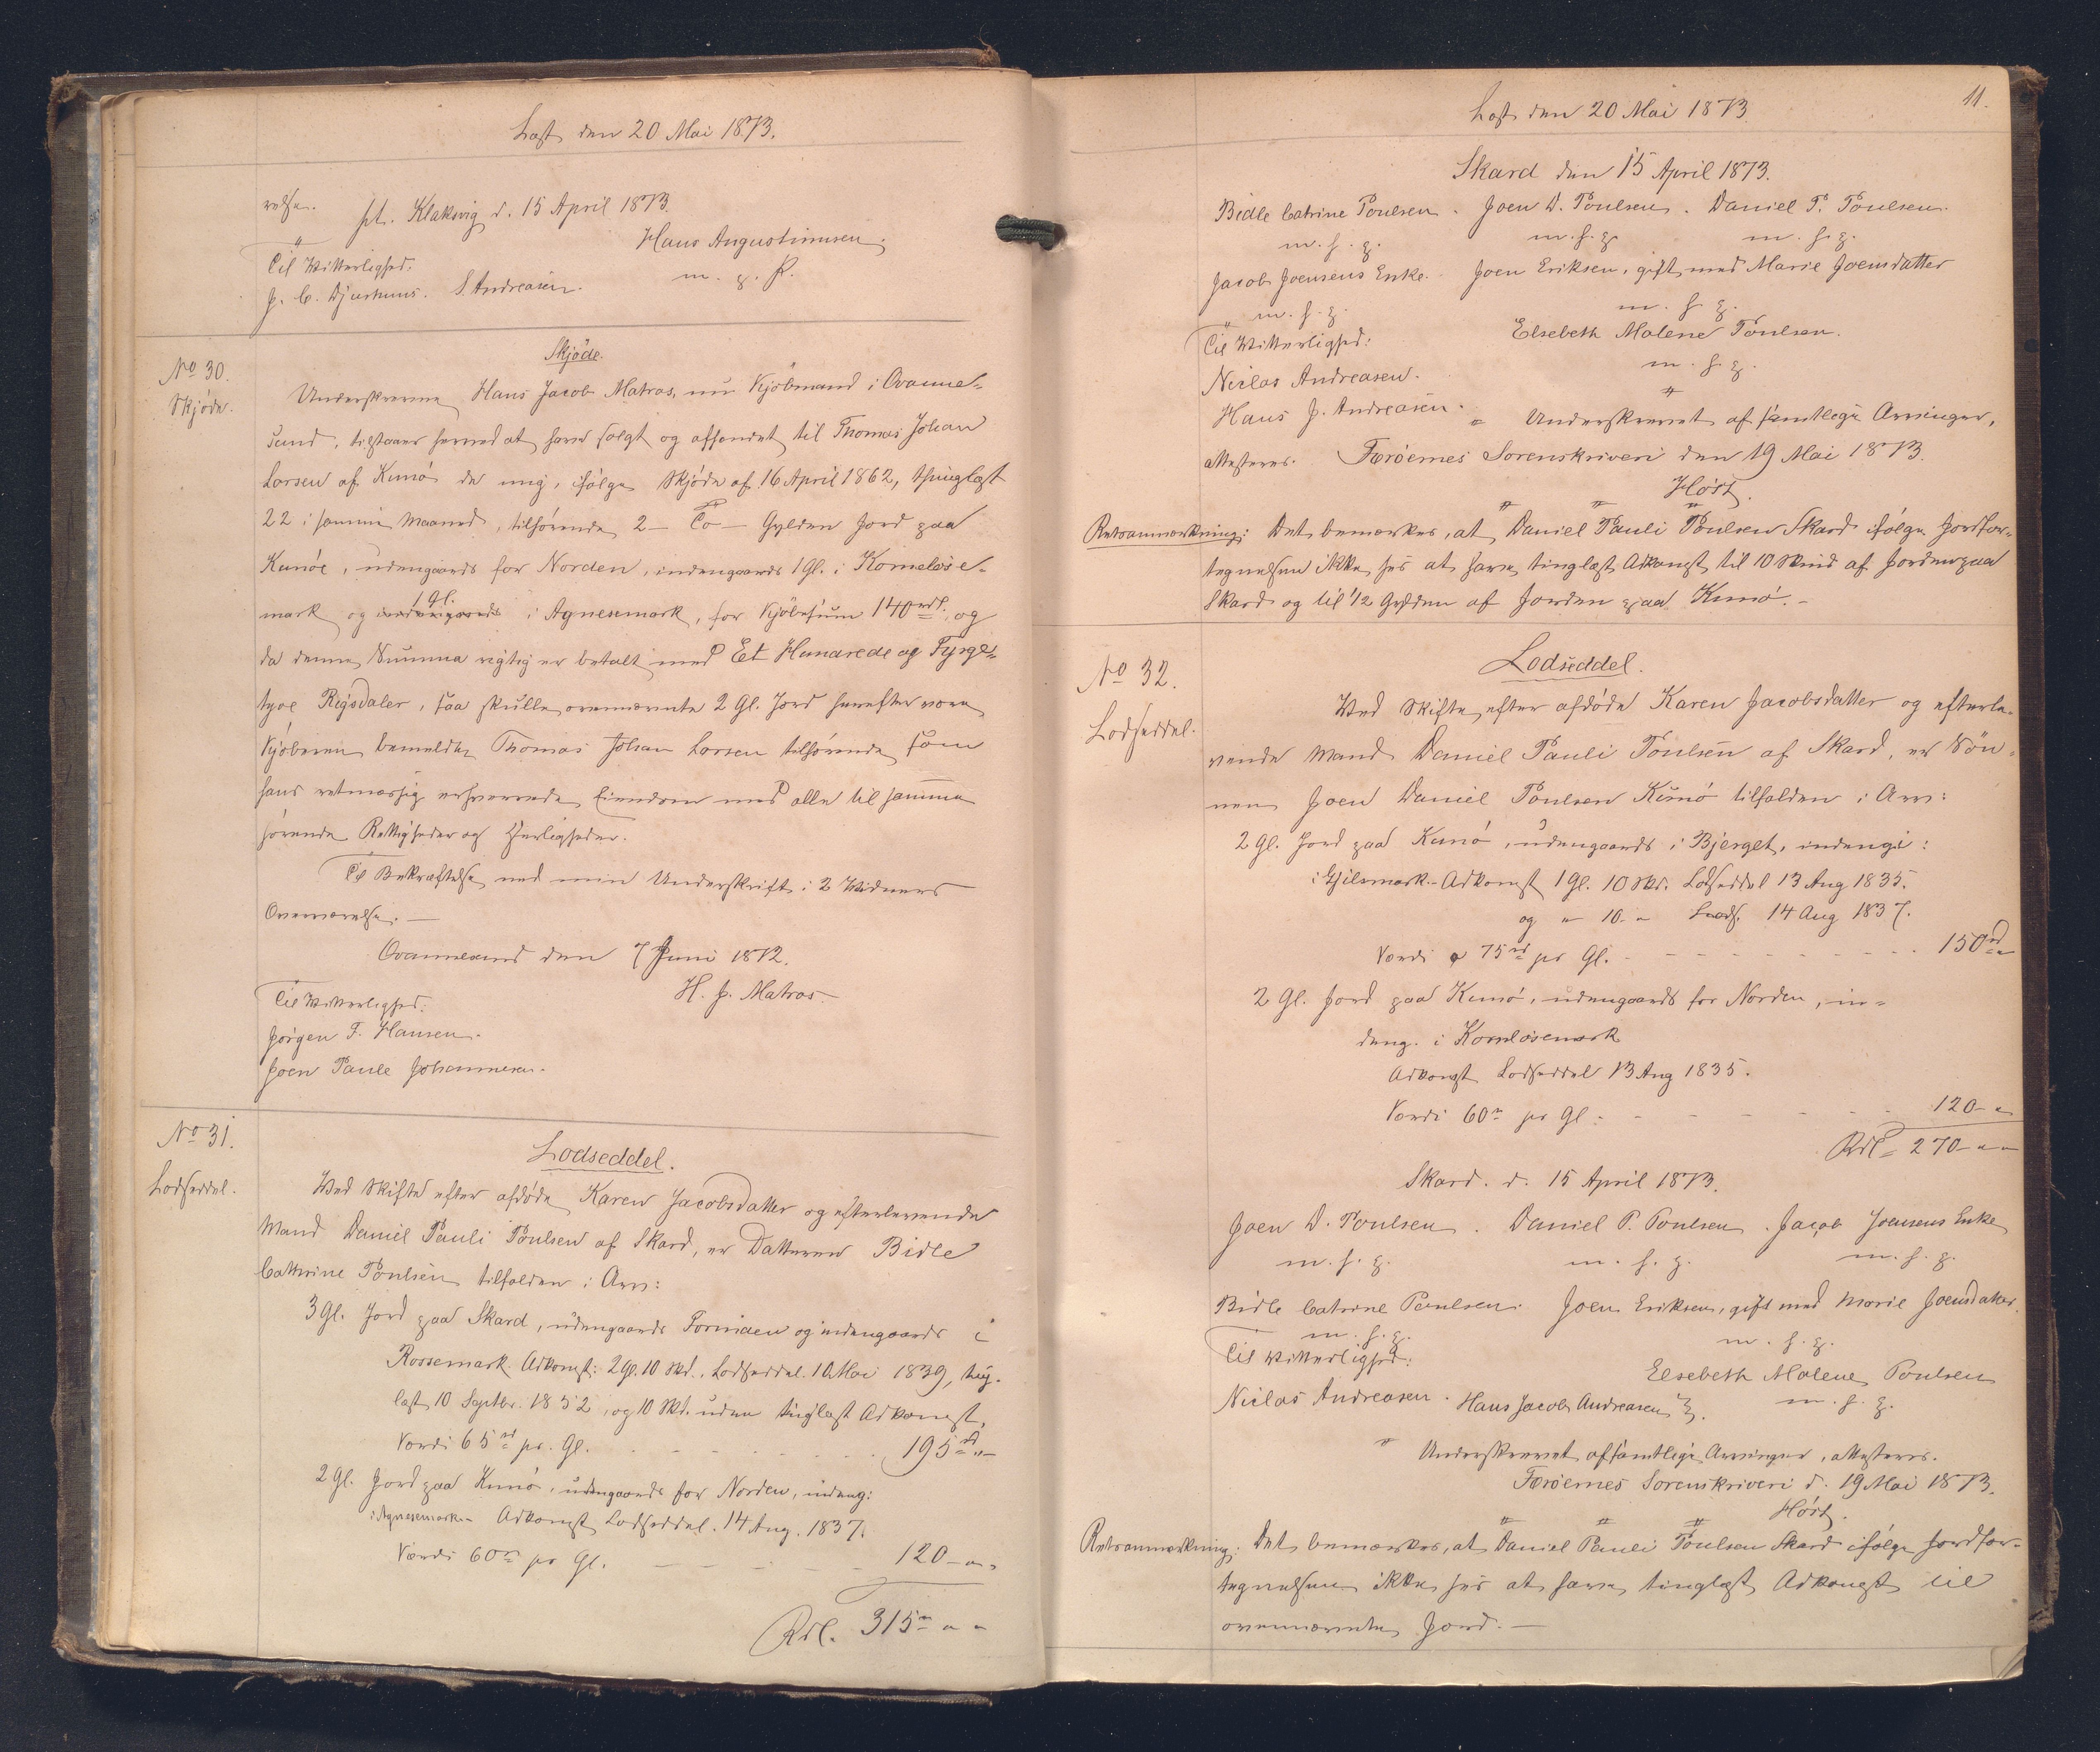 Læst den 20 Mai 1873.
relse.
pt. Klaksvig d. 15 April 1873.
Hans Augustinusen.
m. p. P.
Til Vitterlighed:
J. C. Djurhuus. S. Andreasen.
No 30.
Skjøde.
Skjøde.
Underskrevne Hans Jacob Matras, nu Kjøbmand i Qvanne-
sund, tilstaaer herved at have solgt og afhændet til Thomas Johan
Larsen af Kunø de mig, ifølge Skjøde af 16 April 1862, thinglæst
22 i samme Maaned, tilhørende 2 - To - Gylden Jord paa
Kunøe, udengaards for Norden, indengaards 1 Gl. i Korneløse-
mark og 1 Gl. i Agnesemark, for Kjøbesum 140 rdl. og
da denne Summa rigtig er betalt med Et Hundrede og Fyrge-
tyve Rigsdaler, saa skulle ovennævnte 2 Gl. Jord herefter være
Kjøberen bemeldte Thomas Johan Larsen tilhørende som
hans retmæssig erhvervede Eiendom med alle til samme
hørende Rettigheder og Herligheder.
Til Bekræftelse med min Underskrift i 2 Vidners
Overværelse. -
Qvannesund den 7 Juni 1872.
H. J. Matras.
Til Vitterlighed:
Jørgen F. Hansen.
Joen Paule Johannesen.
No 31.
Lodseddel.
Lodseddel.
Ved Skifte efter afdøde Karen Jacobsdatter og efterlevende
Mand Daniel Pauli Poulsen af Skard, er Datteren Bidle
Cathrine Poulsen tilfalden i Arv:
3 Gl. Jord paa Skard, udengaards og indengaards i
Rossemark. Adkomst: 2 Gl. 10 Skd. Lodseddel 10 Mai 1839, ting-
læst 10 Septbr. 1852, og 10 Skd. uden tinglæst Adkomst,
Værdi 65 rd pr. Gl. - - - - - 195 rd " -
2 Gl. Jord paa Kunø, udengaards for Norden, indeng:
i Agnesemark. - Adkomst Lodseddel 14 Aug. 1837.
Værdi 60 rd pr Gl. - - - - 120 - " "
Rdl. 315 - " "
11.
Læst den 20 Mai 1873.
Skard den 15 April 1873.
Bidle Catrine Poulsen. Joen D. Poulsen. Daniel P. Poulsen.
m. f. p. m. f. p. m. f. p.
Jacob Joensens Enke. Joen Eriksen, gift med Marie Joensdatter
m. f. p. m. f. p.
Til Vitterlighed: Elsebeth Malene Poulsen.
Niclas Andreasen. m. f. p.
Hans J. Andreasen.
" Underskrevet af samtlige Arvinger,
attesteres. Færøernes Sorenskriveri den 19 Mai 1873.
Høst.
Retsanmærkning: Det bemærkes, at Daniel Pauli Poulsen Skard ifølge Jordfor-
tegnelsen ikke sees at have tinglæst Adkomst til 10 Skind af Jorden paa
Skard og til 1/2 Gylden af Jorden paa Kunø. -
No 32.
Lodseddel.
Lodseddel.
Ved Skifte efter afdøde Karen Jacobsdatter og efterle-
vende Mand Daniel Pauli Poulsen af Skard, er Søn-
nen Joen Daniel Poulsen Kunø tilfalden i Arv:
2 Gl. Jord paa Kunø, udengaards i Bjerget, indengs:
i Gilsmark. - Adkomst 1 Gl. 10 Skd. Lodseddel 13 Aug 1835.
og " 10 " Lods. 14 Aug 1837.
Værdi a 75 rd pr Gl. - - - - - 150 rd "
2 Gl. Jord paa Kunø, udengaards for Norden, in-
deng. i Korneløsemark
Adkomst Lodseddel 13 Aug 1835.
Værdi 60 " pr Gl. - - - - - 120 - "
Rdl. 270 - " "
Skard. d. 15 April 1873.
Joen D. Poulsen. Daniel P. Poulsen. Jacob Joensens Enke
m. f. p. m. f. p. m. f. p.
Bidle Catrine Poulsen. Joen Eriksen, gift med Marie Joensdatter.
m. f. p. m. f. p.
Til Vitterlighed: Elsebeth Malene Poulsen
Niclas Andreasen. Hans Jacob Andreasen. m. f. p.
" Underskrevet af samtlige Arvinger, attesteres.
Færøernes Sorenskriveri d. 19 Mai 1873.
Høst.
Retsanmærkning: Det bemærkes, at Daniel Pauli Poulsen Skard ifølge Jordfor-
tegnelsen ikke sees at have tinglæst Adkomst til
ovennævnte Jord. -